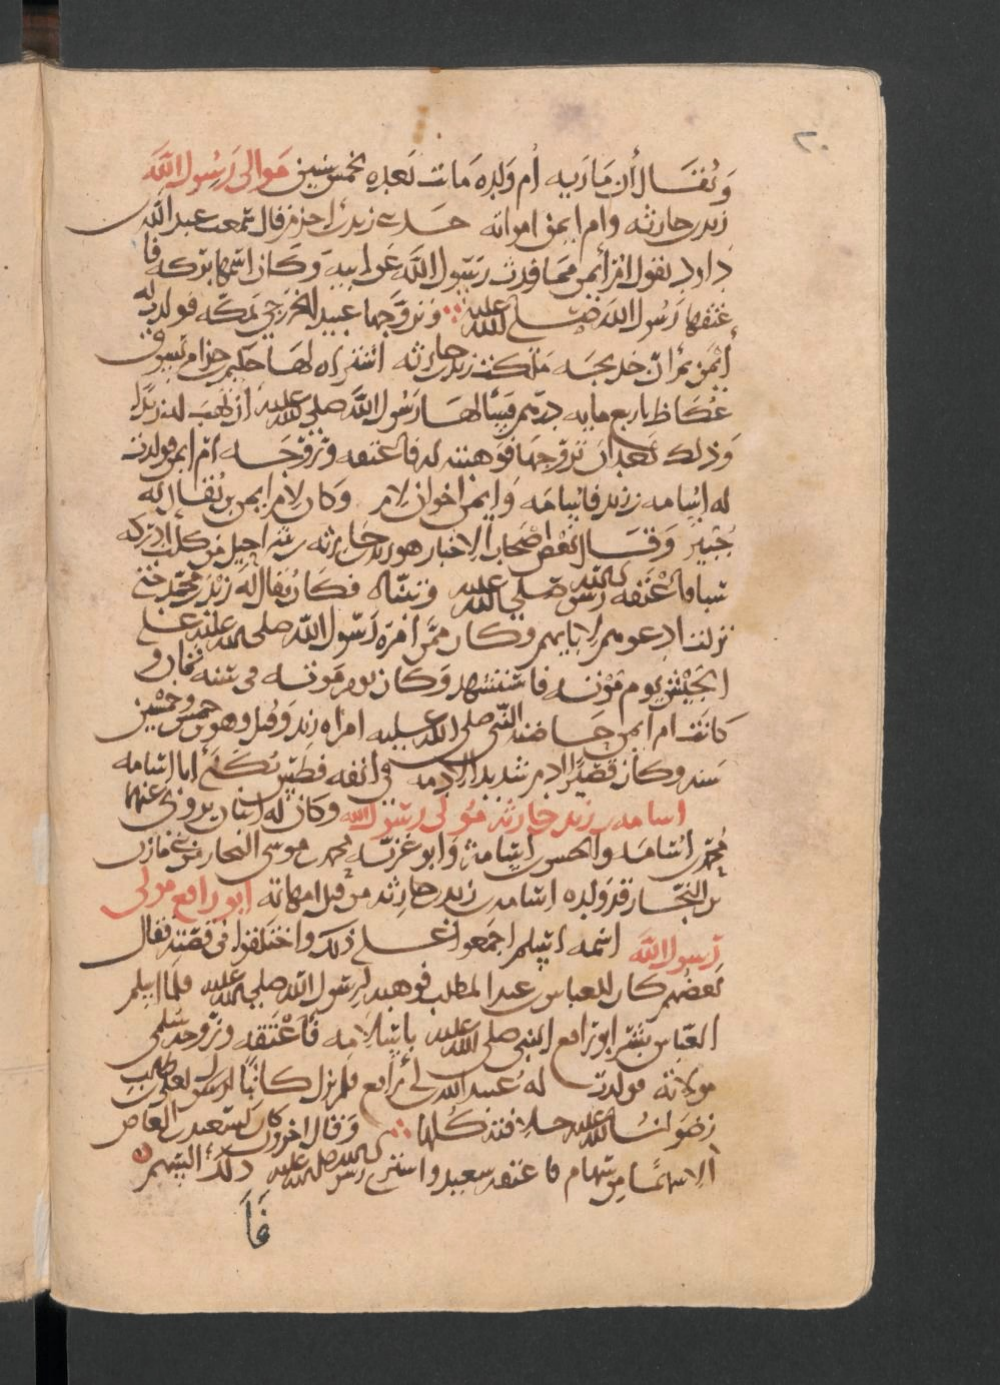 ٢٠
ويقال أن مارية أم ولده ماتت بعده بخمس سنين موالى رسول الله
زيد بن حارثة وام ايمن امراته حدثنى زيد بن اخزم قال سمعت عبد الله بن
داود يقول ام ايمن مما ورث رسول الله عن ابيه وكان اسمها بركه فا
عتقها رسول الله صلى الله عليه وتزوجها عبيد الخزرجي بمكه فولدت له
أيمن ثم ان خديجه ملكت زيد بن حارثه اشتراه لها حكيم بن حزام بسوق
عكاظ باربع مايه درهم فسألها رسول الله صلى الله عليه ان تهب له زيدا
وذلك بعد ان تزوجها فوهبته له فاعتقه وزوجه ام ايمن فولدت
له اسامه بن زيد فاسامه وايمن اخوان لام وكان لام ايمن بن يقال له
جبير وقال بعض اصحاب الاخبار هو زيد بن حارثه بن شراحيل من كلب ادركه
سبا فاعتقه رسول الله صلى الله عليه وتبناه فكان يقال له زيد بن محمد حتى
نزلت ادعوهم لابايهم وكان ممن امره رسول الله صلى الله عليه على
الجيش يوم موته فاستشهد وكان يوم موته فى سنه ثمان و
كانت ام ايمن حاضنه النبي صلى الله عليه امراه زيد وقتل وهو بن خمس وخمسين
سنه وكان قصيرا ادم شديد الادمه في انفه فطس يكنى ابا اسامه
اسامه بن زيد بن حارثه مولى رسول الله وكان له ابنان يروى عنهما
محمد بن اسامه والحسن بن اسامة وابو غزيه محمد بن موسى النجار من بني مازن
بن النجار قد ولده اسامه بن زيد بن حارثه من قبل امهاته ابو رافع مولى
رسول الله اسمه اسلم اجمعوا على ذلك واختلفوا فى قصته فقال
بعضهم كان للعباس بن عبد المطلب فوهبه لرسول الله صلى الله عليه فلما اسلم
العباس بشر ابو رافع النبي صلى الله عليه باسلامه فأعتقه وزوجه سلمى
مولاته فولدت له عبيد الله بن أبي رافع فلم يزل كاتبا لعلي بن ابي طالب
رضوان الله عليه خلافته كلها وقال اخرون كان لسعيد بن العاص
الا سهما من سهام فاعتقه سعيد واشترى رسول الله صلى الله عليه ذلك السهم
فا